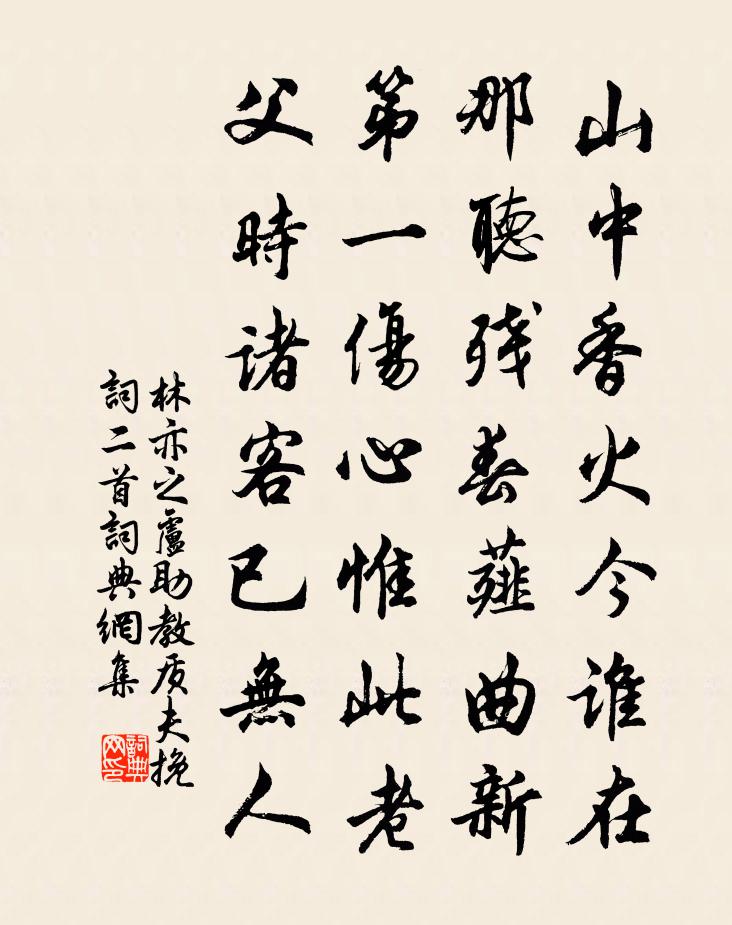 山中香火今誰在
那聽残春薤曲新
第一傷心惟此老
父時諸客已無人
林亦之盧助教质夫挽
詞二首詞典網集
詞典
网印